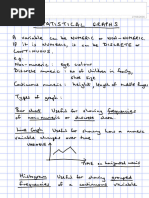 STATISTICAL GRAPHS
A variable can be NUMERIC or NON-NUMERIC.
If it is NUMERIC, it can be DISCRETE or
CONTINUOUS.
E.g.
Non-numeric: eye colour
Discrete numeric: no. of children in family,
shoe size
Continuous numeric: height, length of middle finger
Types of graph:
Bar chart Useful for showing frequencies
of non-numeric or discrete data.
Line Graph Useful for showing how a numeric
variable changes over time.
VARIABLE
TIME on horizontal axis
Histogram Useful for showing grouped
frequencies of a continuous variable